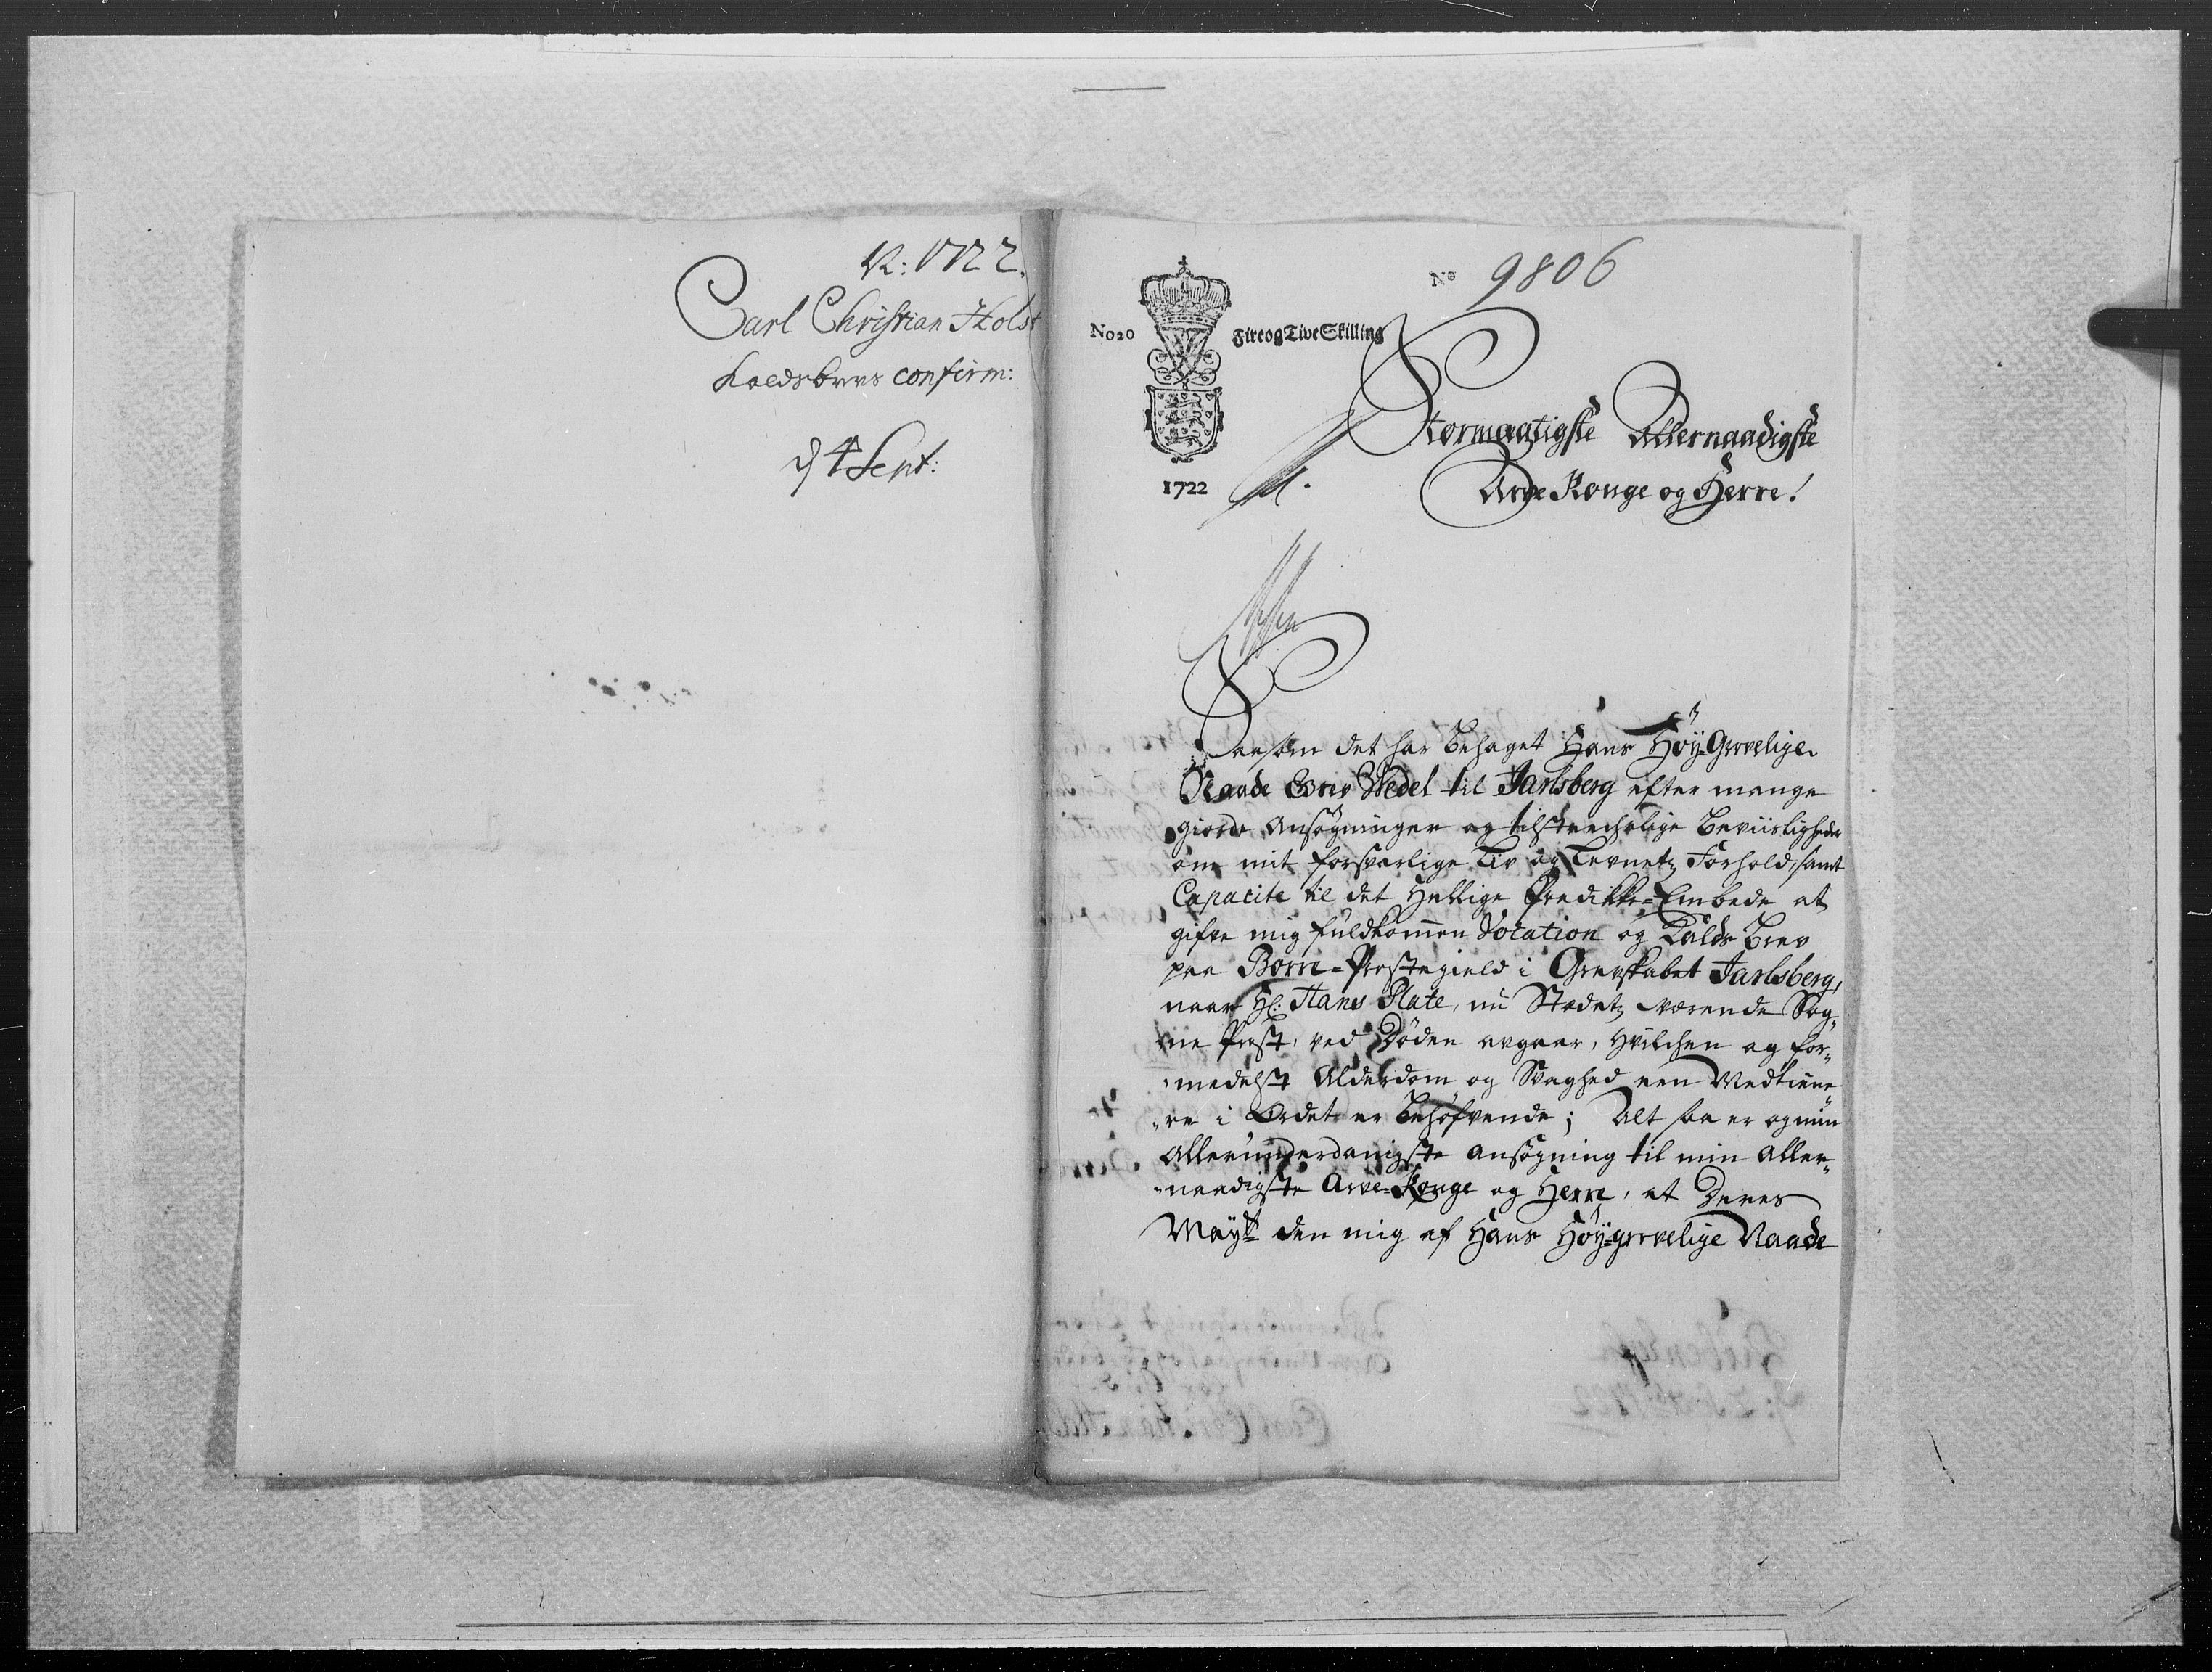 N: 1722.
Carl Christian Holst
Kaldsbrevs confirm:
d 4 Sept:
No 9806
No 20 Fire og Tive Skilling
1722
Stormægtigste Allernaadigste
Arve Konge og Herre!
Saasom det har behaget Hans Høy-Grevelige
Naade Grev Wedel til Jarlsberg efter mange
giorde Ansøgninger og tilstrechelige Beviisligheder
om mit forsvarlige Liv og Levnetz Forhold, samt
Capacite til det Hellige Predikke-Embede at
gifve mig fuldkommen Vocation og Kalds Brev
paa Borre-Prestegield i Grevskabet Jarlsberg,
naar Hr. Hans Plate, nu Stedetz værende Sog-
ne Prest, ved Døden avgaar, Hvilchen og for-
medelst Alderdom og Svaghed een Medtiene
re i Ordet er behøfvende; Alt saa er og min
Allerunderdanigste ansøgning til min Aller-
naadigste Arve-Konge og Herre, at Deres
Mayts den mig af Hans Høy-grevelige Naade